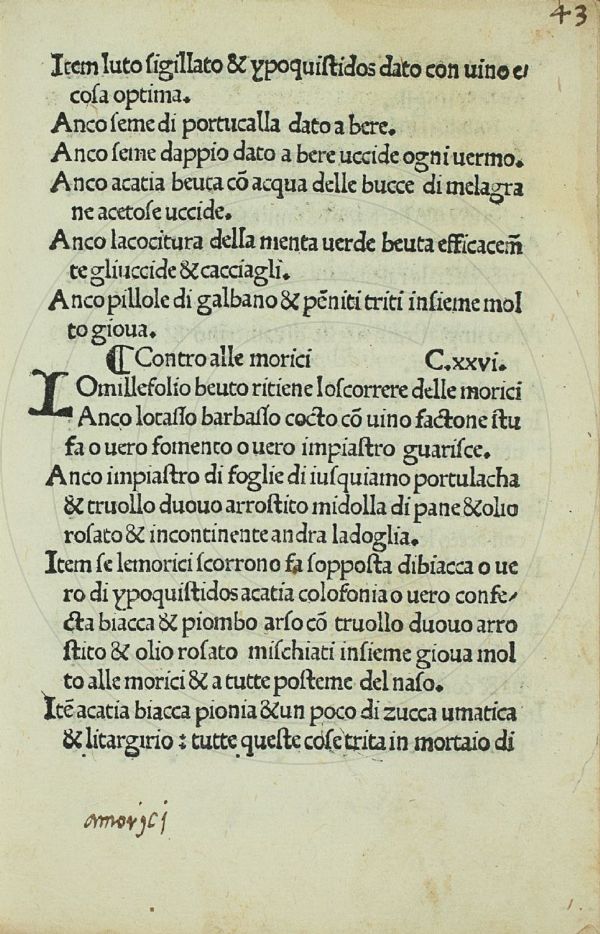 43
Item luto sigillato & ypoquistidos dato con uino e/
cosa optima.
Anco seme di portucalla dato a bere.
Anco seme dappio dato a bere uccide ogni uermo.
Anco acatia beuta cō acqua delle bucce di melagra
ne acetose uccide.
Anco lacocitura della menta uerde beuta efficacem̄
te gliuccide & cacciagli.
Anco pillole di galbano & pēniti triti insieme mol
to gioua.
¶ Contro alle morici C.xxvi.
LOmillefolio beuto ritiene loscorrere delle morici
Anco lotasso barbasso cocto cō uino factone stu
fa o uero fomento o uero impiastro guarisce.
Anco impiastro di foglie di iusquiamo portulacha
& truollo duouo arrostito midolla di pane & olio
rosato & incontinente andra ladoglia.
Item se lemorici scorrono fa sopposta dibiacca o ue
ro di ypoquistidos acatia colofonia o uero confe/
cta biacca & piombo arso cō truollo duouo arro
stito & olio rosato mischiati insieme gioua mol
to alle morici & a tutte posteme del naso.
Itē acatia biacca pionia & un poco di zucca umatica
& litargirio : tutte queste cose trita in mortaio di
amorjcj
1.